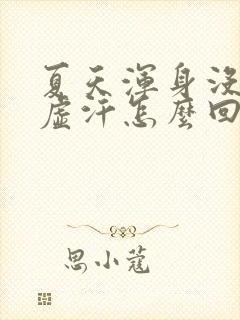 夏天渾身沒
虛汗怎麼回
思小蔻